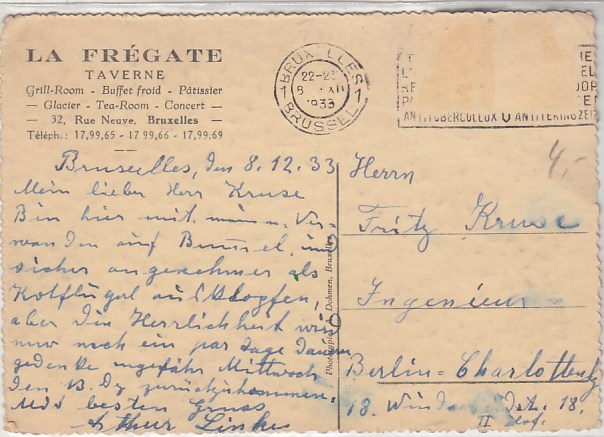 LA FRÉGATE
TAVERNE
Grill-Room - Buffet froid - Pâtissier
— Glacier - Tea-Room - Concert —
— 32, Rue Neuve, Bruxelles —
Téléph.: 17,99,65 - 17 99,66 - 17,99,69
BRUXELLES
22-2
8 XII
1933
1 1
BRUSSEL
ANTITUBERCULEUX ANTITERINGZE
4,-
Bruxelles, den 8.12.33
Mein lieber Herr Kruse
Bin hier mit Ver-
wanden auf Bummel, und
sicher angenehmer als
Kotflügel ausklopfen,
aber die Herrlichkeit wird
nur noch ein par Tage dauern
gedenke ungefähr Mittwoch
den 13. Dz zurückzukommen.
Mit besten Gruss
Arthur Linke
Dohmen, Bruxelles
Herrn
Fritz Kruse
Ingenieur
Berlin-Charlottenbg
18. 18.
II